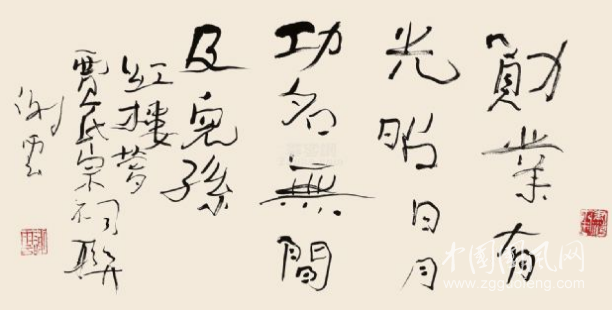 勛業有
光昭日月
功名無間
及兒孫
紅樓夢
賈氏宗祠聯
谢云
中国国风网
www.zgguofeng.com